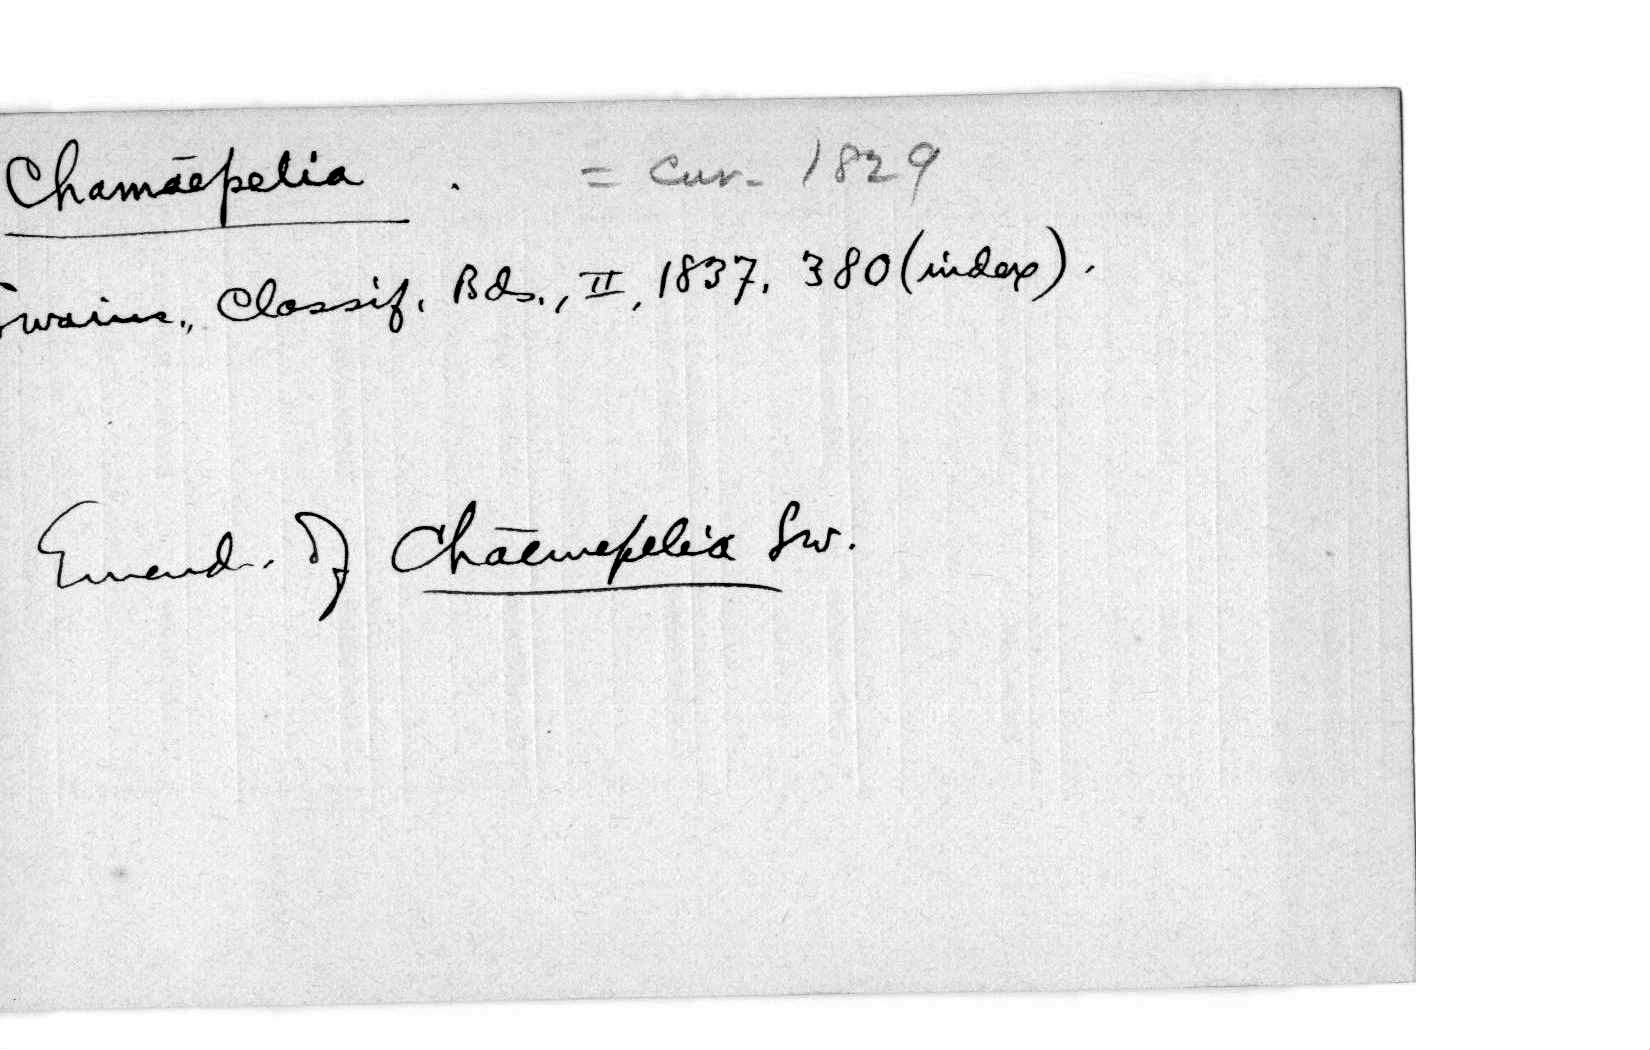 Chamaepelia . = Cuv. 1829
Swains., Classif. Bds., II, 1837, 380 (index).
Emend. of Chaemepelia Sw.